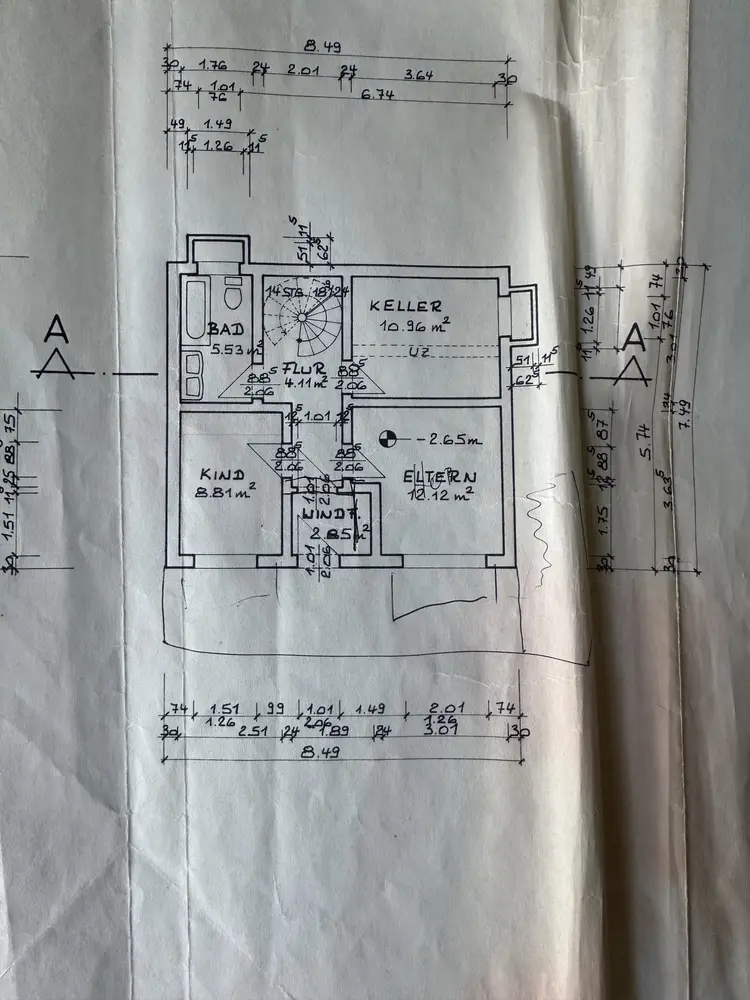 8.49
30 1.76 24 2.01 24 3.64 30
74 1.01 6.74
76
49 1.49
11⁵ 1.26 11⁵
51 11⁵
62⁵
14 STG 18⁶/24
KELLER
10.96 m²
BAD
5.53 m²
UZ
FLUR
4.11 m²
88⁵
2.06
88⁵
2.06
A
A
51 11⁵
62⁵
12⁵ 1.01 12⁵
-2.65m
88⁵
2.06
88⁵
2.06
KIND
8.81 m²
ELTERN
12.12 m²
1.01
2.06
WINDF.
2.85 m²
1.01
2.06
75
88
25
11⁵
1.51
30
49
11⁵
1.26
11⁵
74
1.01
76
30
3.01
24
3.63⁵
30
5.74
7.49
87
88⁵
12⁵
1.75
30
74 1.51 99 1.01 1.49 2.01 74
1.26 2.06 1.26
30 2.51 24 1.89 24 3.01 30
8.49